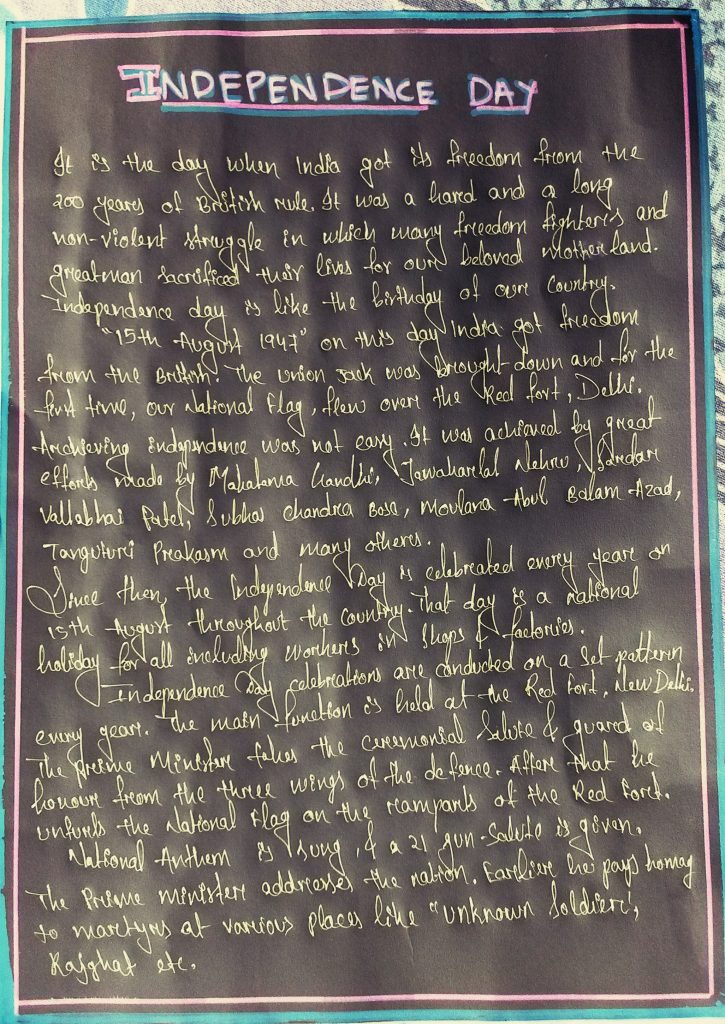 INDEPENDENCE DAY
It is the day when India got its freedom from the
200 years of British rule. It was a hard and a long
non-violent struggle in which many freedom fighters and
greatman sacrificed their lives for our beloved motherland.
Independence day is like the birthday of our country.
"15th August 1947" on this day India got freedom
from the British. The union Jack was brought down and for the
first time, our National Flag, flew over the Red fort, Delhi.
Archieving independence was not easy. It was achieved by great
efforts made by Mahatama Gandhi, Jawaharlal Nehru, Sardar
Vallabhai Patel, Subhas Chandra Bose, Moulana Abul Balam Azad,
Tanguturi Prakasm and many others.
Since then, the Independence Day is celebrated every year on
15th August throughout the country. That day is a national
holiday for all including workers in shops & factories.
Independence Day celebrations are conducted on a set pattern
every year. The main function is held at the Red fort, New Delhi.
The prime Minister takes the ceremonial Salute & guard of
honour from the three wings of the defence. After that he
unfurls the National Flag on the ramparts of the Red Fort.
National Anthem is sung, & a 21 gun-Salute is given.
The Prime minister addresses the nation. Earlier he pays homag
to martyrs at various places like "unknown Soldier',
Rajghat etc.